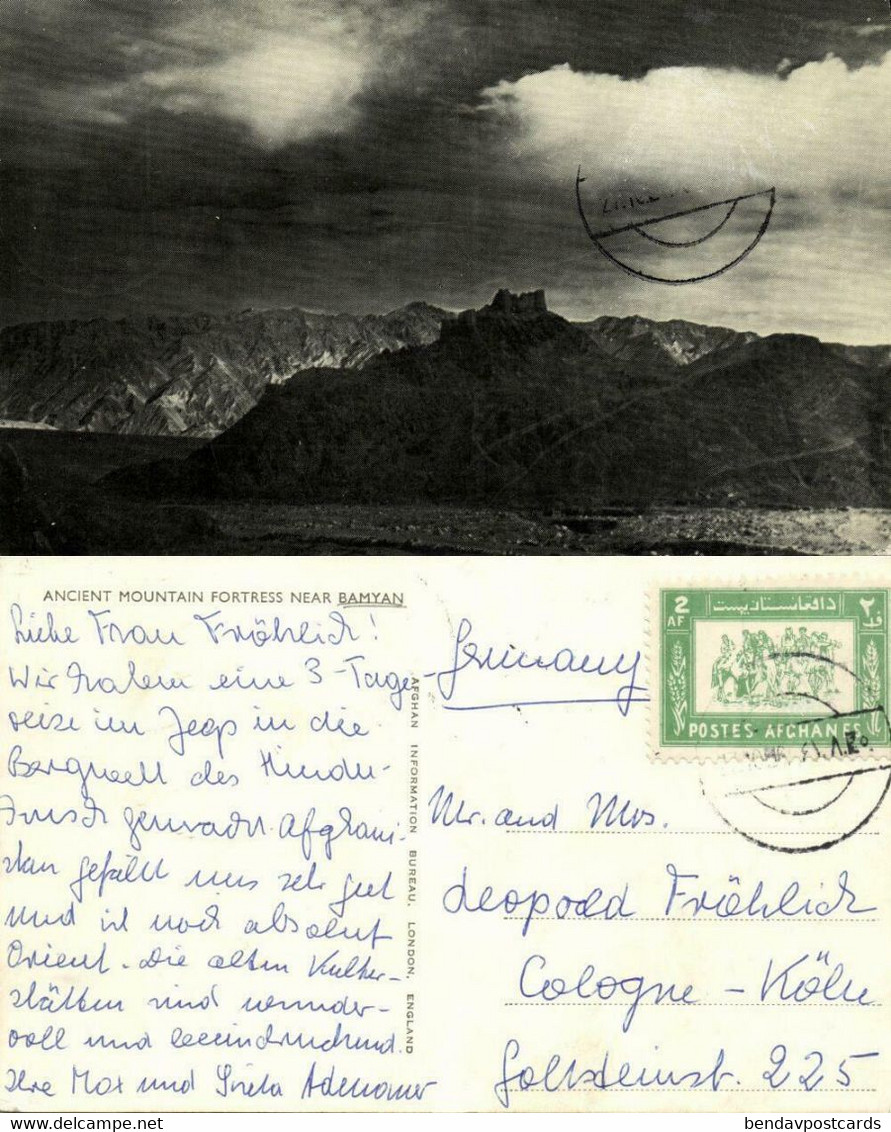 ANCIENT MOUNTAIN FORTRESS NEAR BAMYAN
Liebe Frau Fröhlich!
Wir haben eine 3-Tage-
reise im Jeep in die
Bergwelt des Hindu-
kusch gemacht. Afghani-
stan gefällt uns sehr gut
und ist noch absolut
Orient. Die alten Kultur-
stätten sind wunder-
voll und beeindruckend.
Ihre Max und Adenauer
AFGHAN INFORMATION BUREAU, LONDON, ENGLAND
Germany
2
AF
دافغانستان پست
٢
POSTES AFGHANES
Mr. and Mrs.
Leopold Fröhlich
Cologne - Köln
Goltsteinstr. 225
bendavpostcards